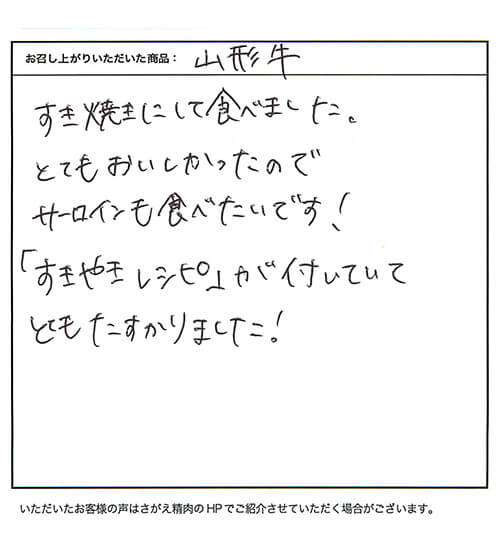 お召し上がりいただいた商品： 山形牛
すき焼きにして食べました。
とてもおいしかったので
サーロインも食べたいです！
「すきやきレシピ」が付いていて
とてもたすかりました！
いただいたお客様の声はさがえ精肉のHPでご紹介させていただく場合がございます。